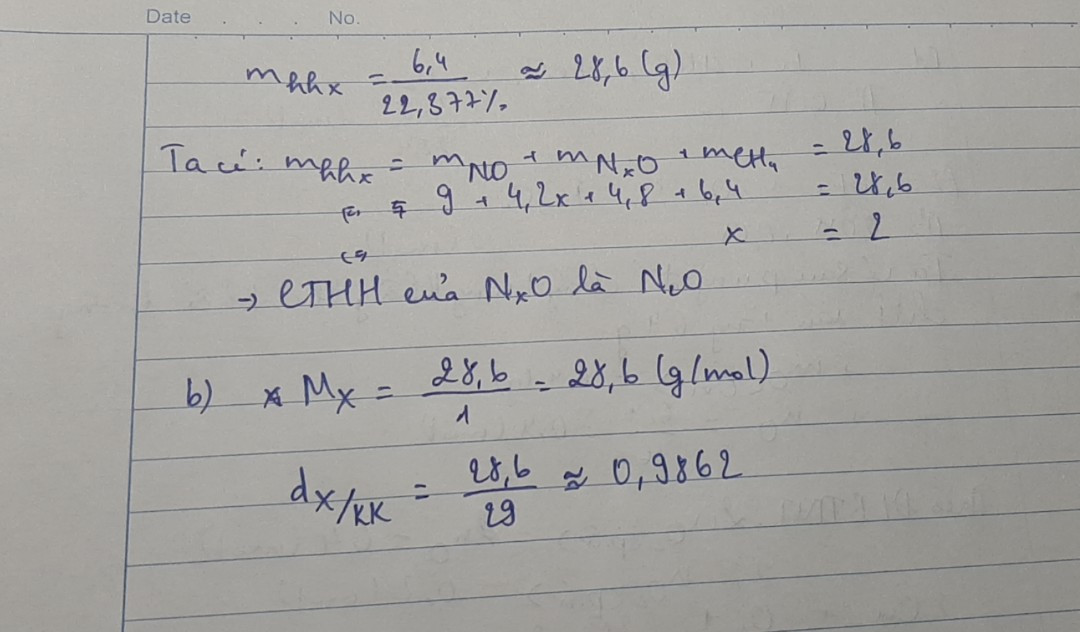 Date . . . No.
m hhx = 6,4 / 22,377% ≈ 28,6 (g)
Ta có: m hhx = mNO + mNxO + mCH4 = 28,6
⇔ = 9 + 4,2x + 4,8 + 6,4 = 28,6
⇔ x = 2
→ CTHH của NxO là N2O
b) * Mx = 28,6 / 1 = 28,6 (g/mol)
dx/KK = 28,6 / 29 ≈ 0,9862